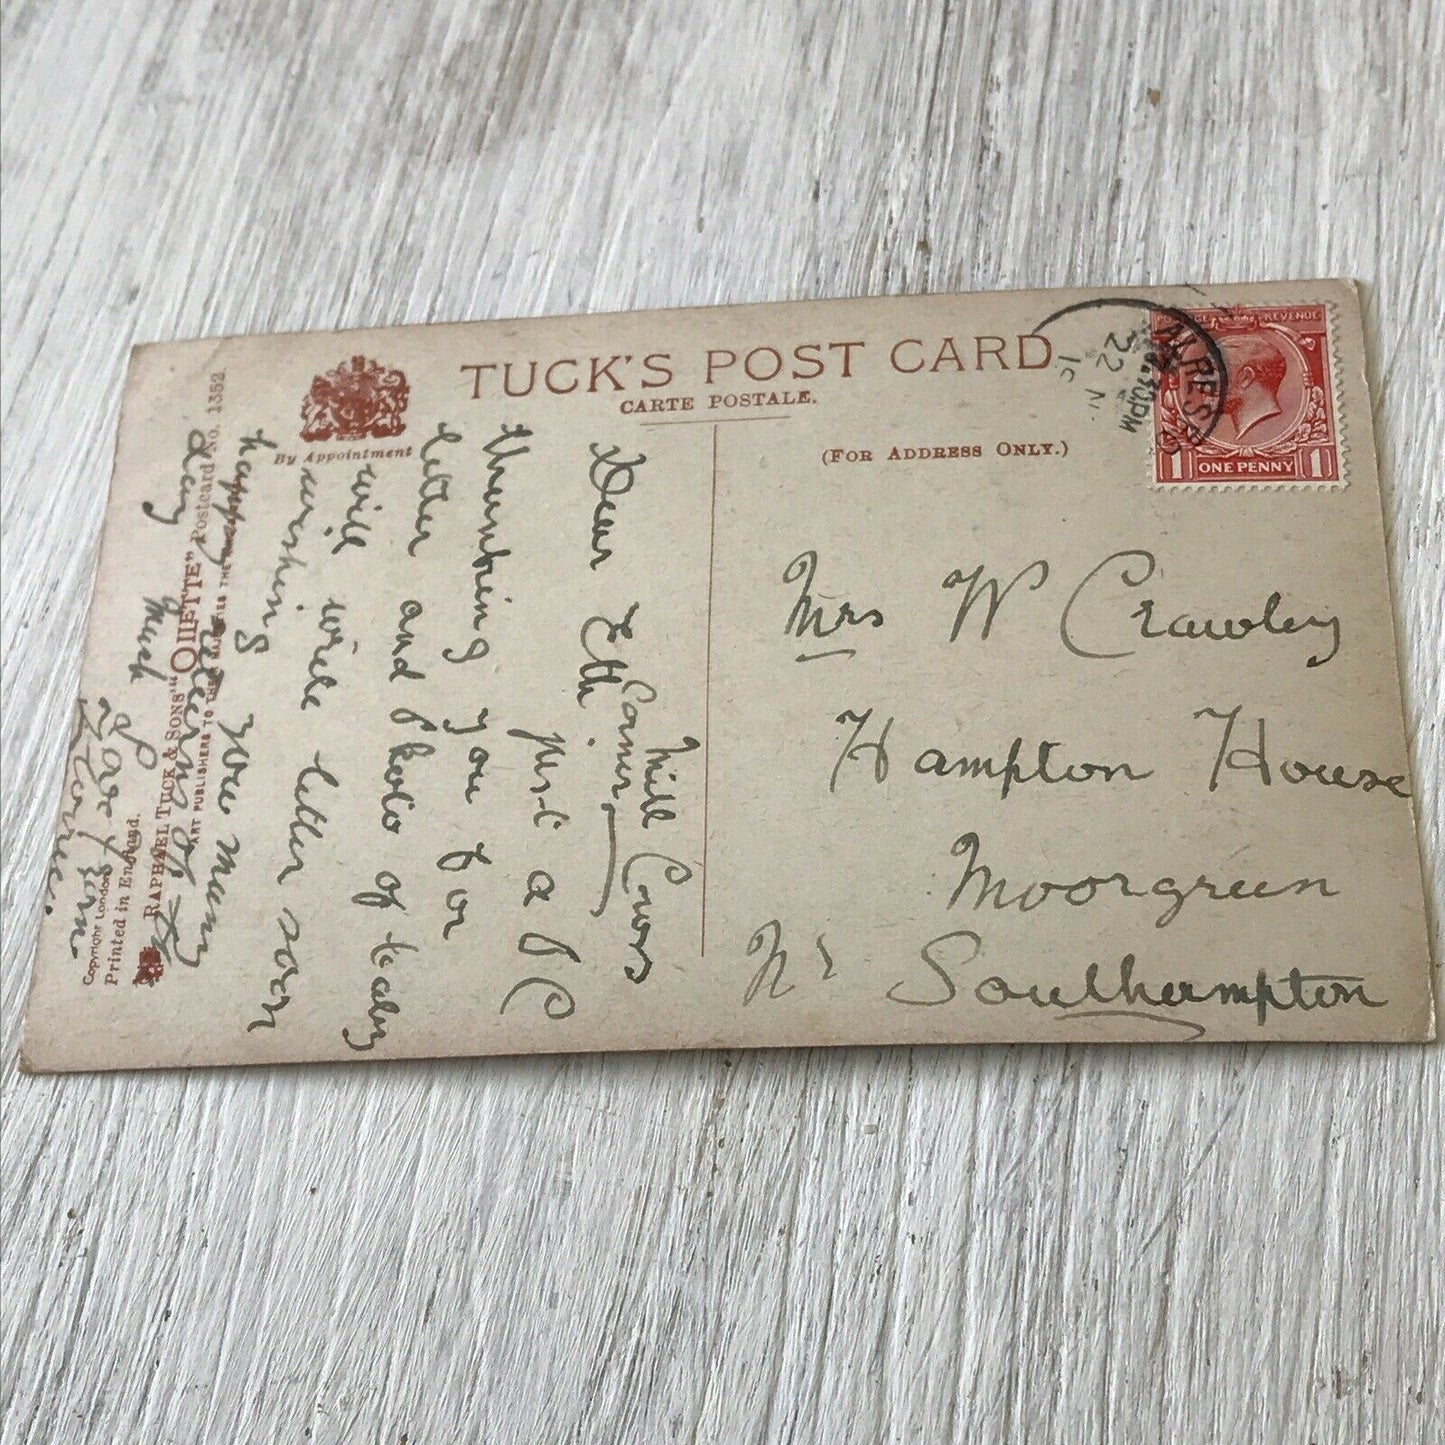 TUCK'S POST CARD
CARTE POSTALE.
By Appointment
(FOR ADDRESS ONLY.)
ALRESFORD
30PM
22 N
POSTAGE REVENUE
1 ONE PENNY 1
Mrs W Crawley
Hampton House
Moorgreen
Nr Southampton
Mill
Corner
Dear Eth just a PC
thanking you for
letter and Photo of baby
will write letter soon
wishing you many
happy returns of
day
Much Love from
RAPHAEL TUCK & SONS' "OILETTE" Postcard No. 1352.
ART PUBLISHERS TO THEIR MAJESTIES THE
Copyright London
Printed in England.